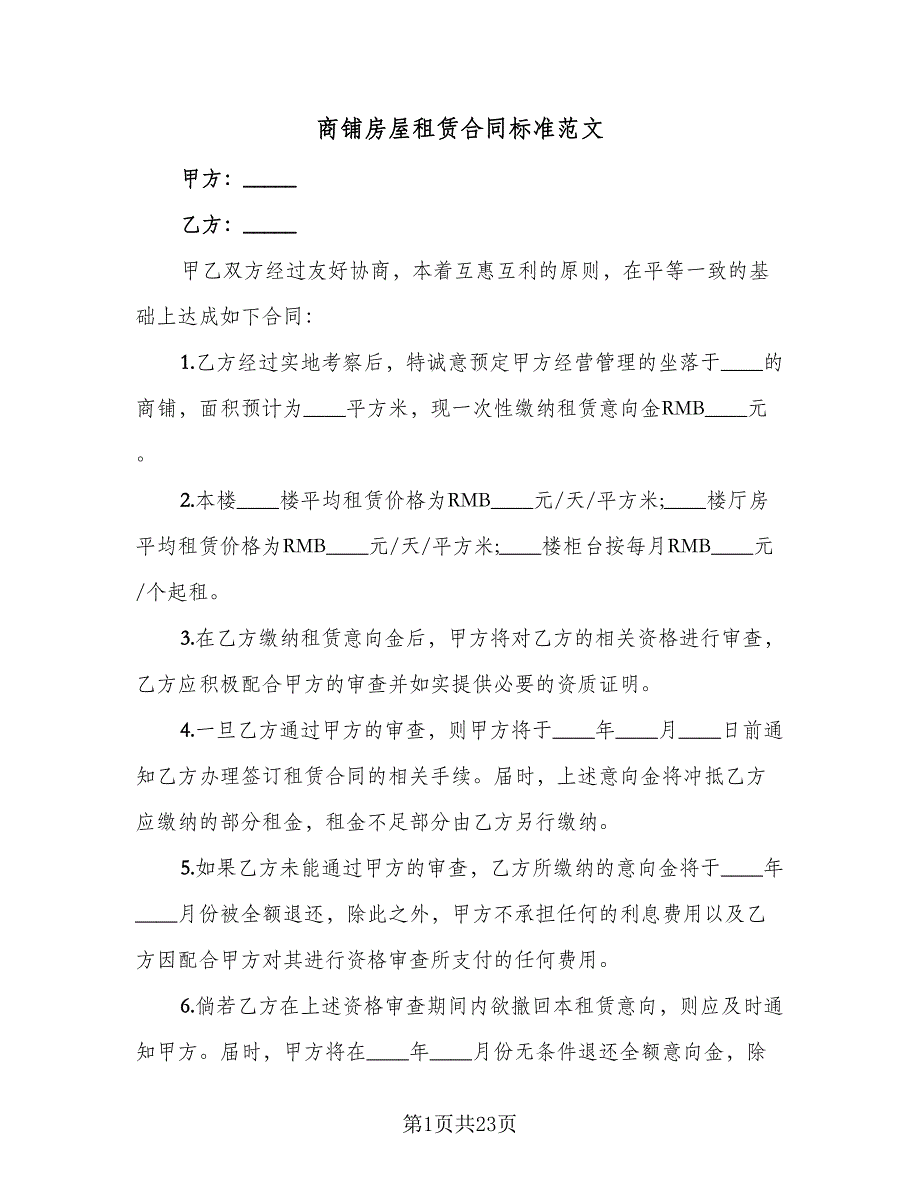 商铺房屋租赁合同标准范文
甲方：_____
乙方：_____
甲乙双方经过友好协商，本着互惠互利的原则，在平等一致的基
础上达成如下合同：
1.乙方经过实地考察后，特诚意预定甲方经营管理的坐落于____的
商铺，面积预计为____平方米，现一次性缴纳租赁意向金RMB____元
。
2.本楼____楼平均租赁价格为RMB____元/天/平方米;____楼厅房
平均租赁价格为RMB____元/天/平方米;____楼柜台按每月RMB____元
/个起租。
3.在乙方缴纳租赁意向金后，甲方将对乙方的相关资格进行审查，
乙方应积极配合甲方的审查并如实提供必要的资质证明。
4.一旦乙方通过甲方的审查，则甲方将于____年____月____日前通
知乙方办理签订租赁合同的相关手续。届时，上述意向金将冲抵乙方
应缴纳的部分租金，租金不足部分由乙方另行缴纳。
5.如果乙方未能通过甲方的审查，乙方所缴纳的意向金将于____年
____月份被全额退还，除此之外，甲方不承担任何的利息费用以及乙
方因配合甲方对其进行资格审查所支付的任何费用。
6.倘若乙方在上述资格审查期间内欲撤回本租赁意向，则应及时通
知甲方。届时，甲方将在____年____月份无条件退还全额意向金，除
第1页共23页